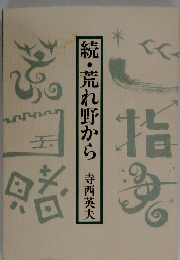 続・荒れ野から
寺西英夫
指